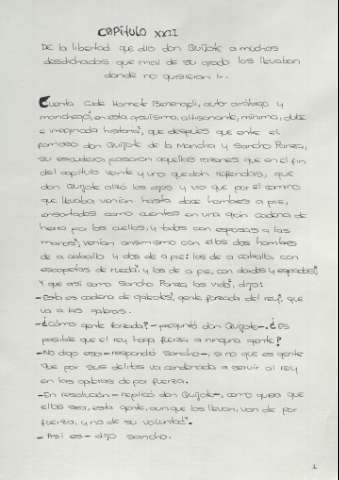 CAPÍTULO XXII
De la libertad que dio don Quijote a muchos
desdichados que mal de su grado los llevaban
donde no quisieran ir.
Cuenta Cide Hamete Benengeli, autor arábigo y
manchego, en esta gravísima, altisonante, mínima, dulce
e imaginada historia, que después que entre el
famoso don Quijote de la Mancha y Sancho Panza,
su escudero, pasaron aquellas razones que en el fin
del capítulo veinte y uno quedan referidas, que
don Quijote alzó los ojos y vio que por el camino
que llevaba venían hasta doce hombres a pie,
ensartados como cuentas en una gran cadena de
hierro por los cuellos, y todos con esposas a las
manos; venían ansimismo con ellos dos hombres
de a caballo y dos de a pie: los de a caballo con
escopetas de rueda, y los de a pie, con dardos y espadas;
Y que así como Sancho Panza los vido, dijo:
-Esta es cadena de galeotes, gente forzada del rey, que
va a las galeras.
-¿Cómo gente forzada?- preguntó don Quijote-. ¿Es
posible que el rey haga fuerza a ninguna gente?
-No digo eso -respondió Sancho-, si no que es gente
que por sus delitos va condenada a servir al rey
en las galeras de por fuerza.
-En resolución -replicó don Quijote-, como quiera que
ello sea, esta gente, aunque los llevan, van de por
fuerza, y no de su voluntad.
-Así es- dijo Sancho.
1